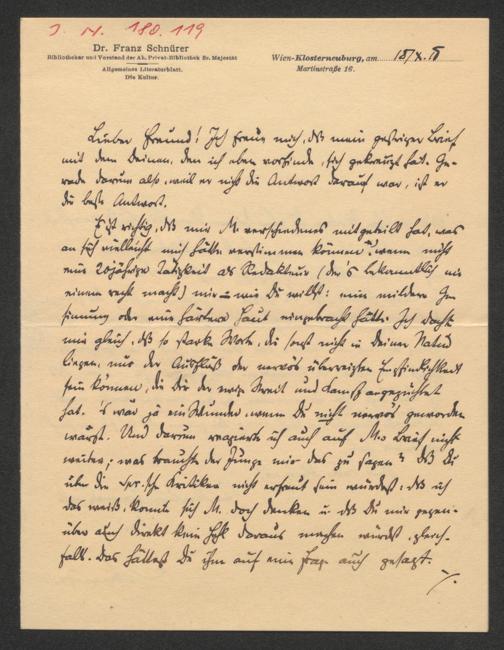 J. N. 180.119
Dr. Franz Schnürer
Bibliothekar und Vorstand der Ah. Privat-Bibliothek Sr. Majestät
Allgemeines Literaturblatt.
Die Kultur.
Wien-Klosterneuburg, am 18/X. 
Martinstraße 16.
Lieber Freund! Ich freue mich, daß mein gestriger Brief
mit dem Deinen, den ich eben vorfinde, sich gekreuzt hat. Ge-
rade darum also, weil er nicht die Antwort darauf war, ist er
die beste Antwort.
Es ist richtig, daß mir M. verschiedenes mitgeteilt hat, was
an sich vielleicht mich hätte verstimmen können, wenn nicht
eine 20jährige Tätigkeit als Redakteur (der's bekanntlich nie
einem recht macht) mir – wie Du willst: eine mildere Ge-
sinnung oder eine härtere Haut eingebracht hätte. Ich dachte
mir gleich, daß so starke Worte, die sonst nicht in Deiner Natur
liegen, nur der Ausfluß der nervös überreizten Empfindlichkeit
sein können, die Dir der ewige Streit und Kampf angezüchtet
hat. 's wär ja ein Wunder, wenn Du nicht nervös geworden
wärst. Und darum reagierte ich auch auf M.s Brief nicht
weiter; was brauchte der Junge mir das zu sagen? Daß Du
über die Kritiken nicht erfreut sein würdest, daß ich
das weiß, konnte sich M. doch denken u. daß Du mir gegen-
über auch direkt kein Hehl daraus machen würdest, gleich-
falls. Das hättest Du ihm auf eine Frage auch gesagt.
./.